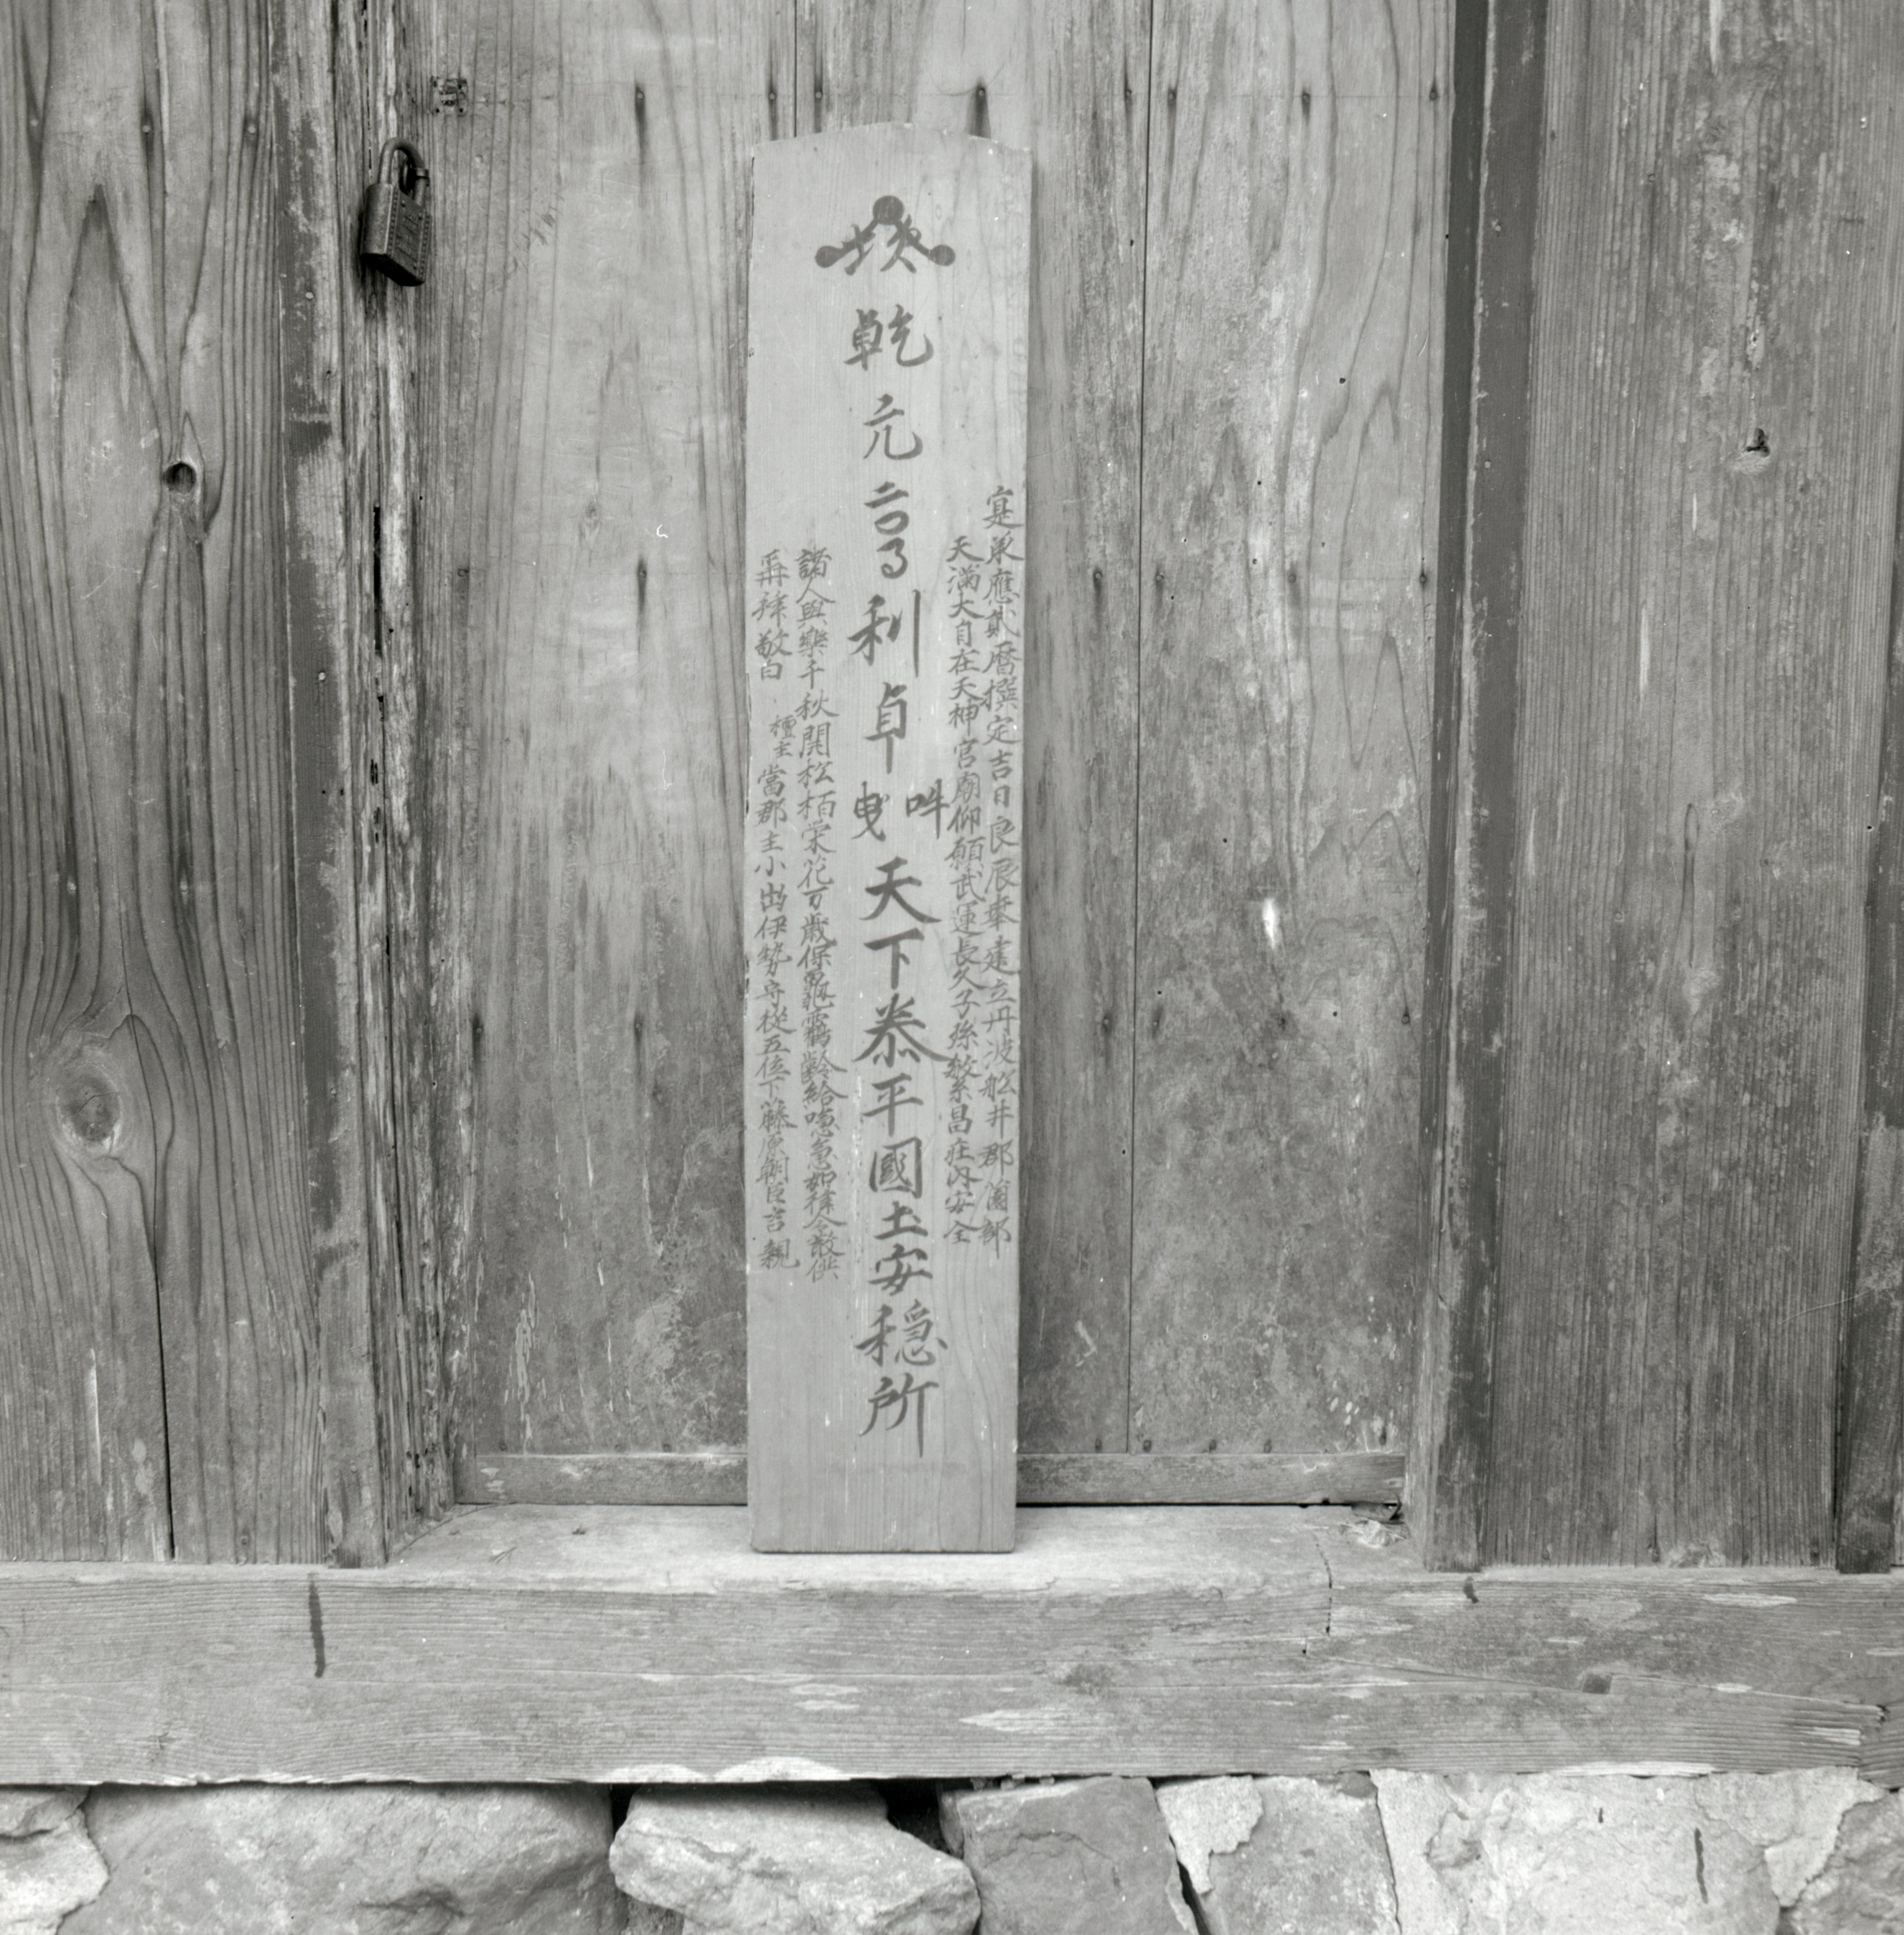 寔承應貳暦撰定吉日良辰奉建立丹波舩井郡薗部
天滿大自在天神宮廟仰願武運長久子孫繁昌庄内安全
乾元亨利貞 吽曳 天下泰平國土安穩所
諸人與樂千秋開松栢栄花万歳保龜靏齡給噫急如律令散供
再拜敬白 檀主當郡主小出伊勢守從五位下藤原朝臣吉親